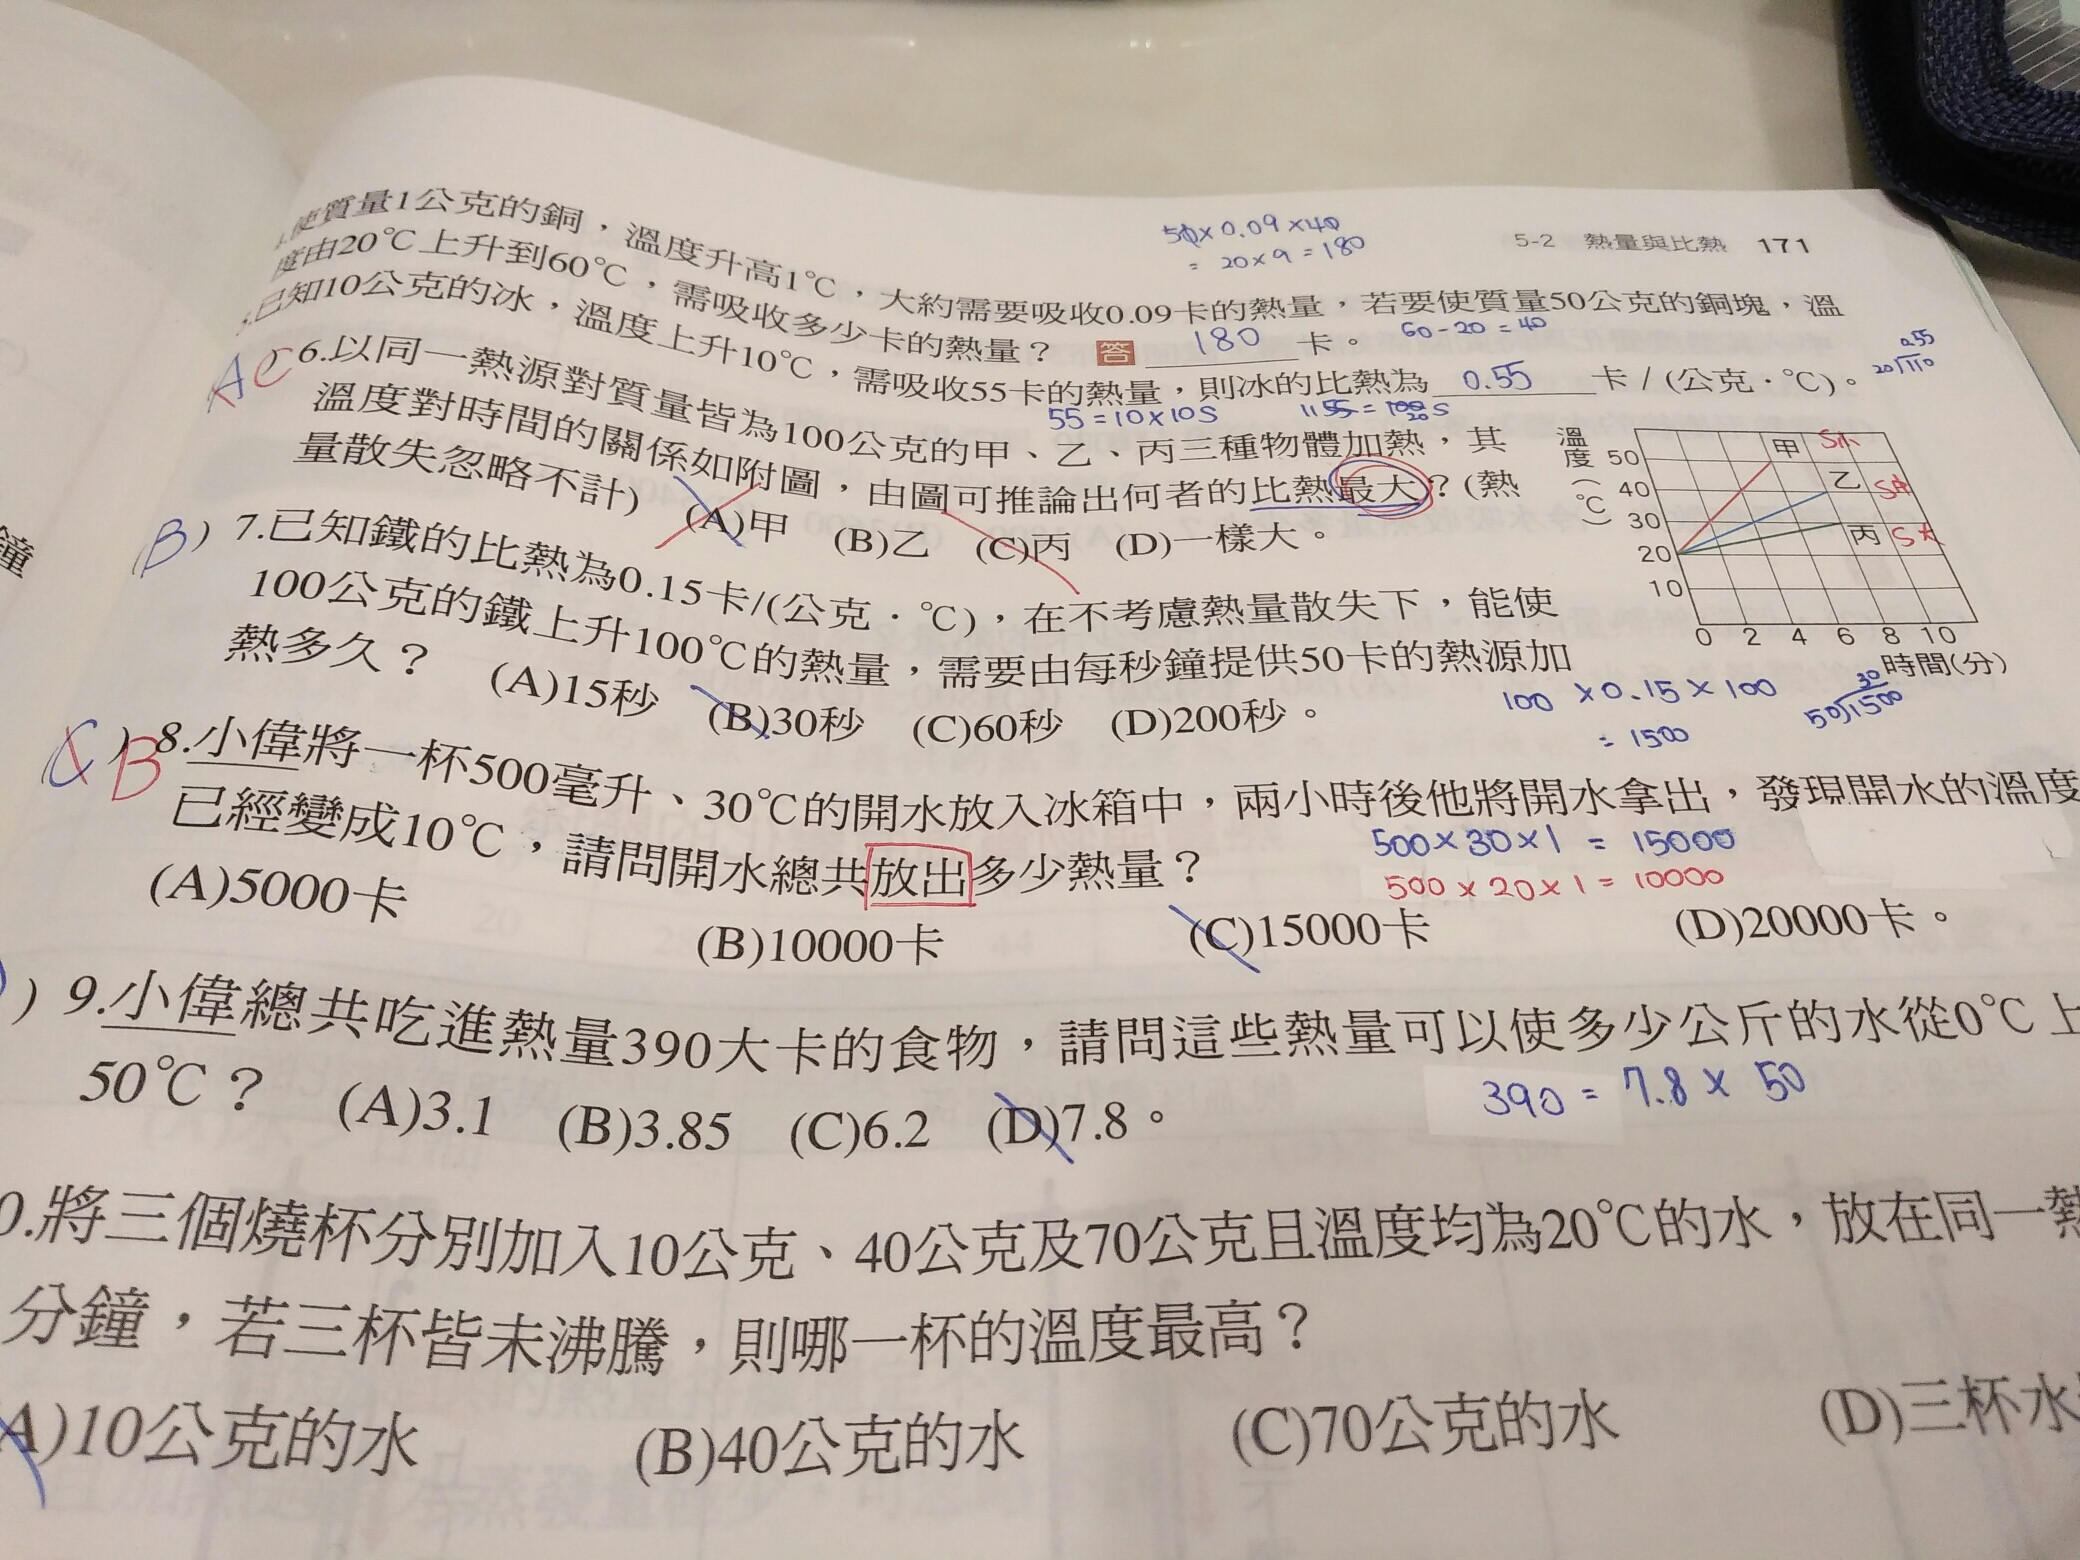 5-2 熱量與比熱 171
50×0.09×40
= 20×9=180
使質量1公克的銅，溫度升高1℃，大約需要吸收0.09卡的熱量，若要使質量50公克的銅塊，溫
度由20℃上升到60℃，需吸收多少卡的熱量？ 答 180 卡。 60-20=40
已知10公克的冰，溫度上升10℃，需吸收55卡的熱量，則冰的比熱為 0.55 卡/(公克·℃)。
55=10×10S
A C 6.以同一熱源對質量皆為100公克的甲、乙、丙三種物體加熱，其
溫度對時間的關係如附圖，由圖可推論出何者的比熱最大？(熱
量散失忽略不計) (A)甲 (B)乙 (C)丙 (D)一樣大。
溫度(℃)
50
40
30
20
10
0 2 4 6 8 10
時間(分)
甲 S小
乙 S中
丙 S大
B ) 7.已知鐵的比熱為0.15卡/(公克·℃)，在不考慮熱量散失下，能使
100公克的鐵上升100℃的熱量，需要由每秒鐘提供50卡的熱源加
熱多久？ (A)15秒 (B)30秒 (C)60秒 (D)200秒。
100×0.15×100
=1500
30
50)1500
C ) B 8.小偉將一杯500毫升、30℃的開水放入冰箱中，兩小時後他將開水拿出，發現開水的溫度
已經變成10℃，請問開水總共放出多少熱量？
500×30×1 = 15000
500×20×1=10000
(A)5000卡 (B)10000卡 (C)15000卡 (D)20000卡。
) 9.小偉總共吃進熱量390大卡的食物，請問這些熱量可以使多少公斤的水從0℃上
50℃？ (A)3.1 (B)3.85 (C)6.2 (D)7.8。
390 = 7.8 × 50
0.將三個燒杯分別加入10公克、40公克及70公克且溫度均為20℃的水，放在同一熱
分鐘，若三杯皆未沸騰，則哪一杯的溫度最高？
(A)10公克的水 (B)40公克的水 (C)70公克的水 (D)三杯水
鐘